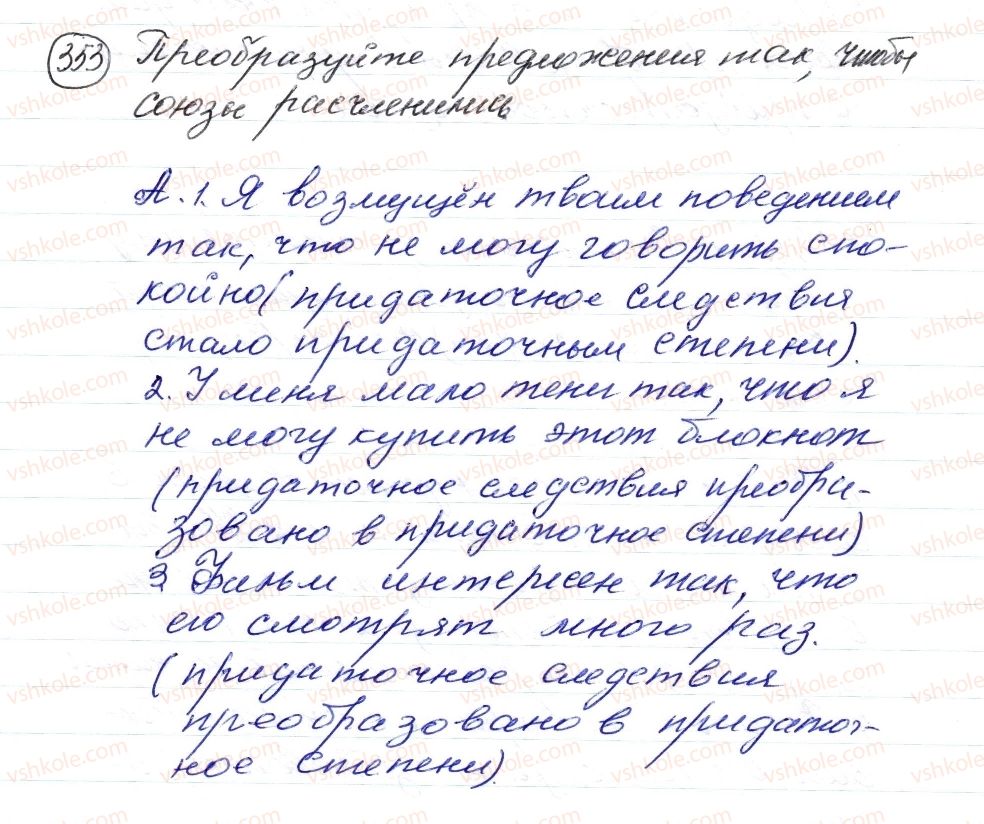 353 Преобразуйте предложения так, чтобы
союзы расчленились
А. 1. Я возмущён твоим поведением
так, что не могу говорить спо-
койно (придаточное следствия
стало придаточным степени).
2. У меня мало тени так, что я
не могу купить этот блокнот
(придаточное следствия преобри-
зовано в придаточное степени)
3. Фильм интересен так, что
его смотрят много раз.
(придаточное следствия
преобразовано в придаточ-
ное степени).